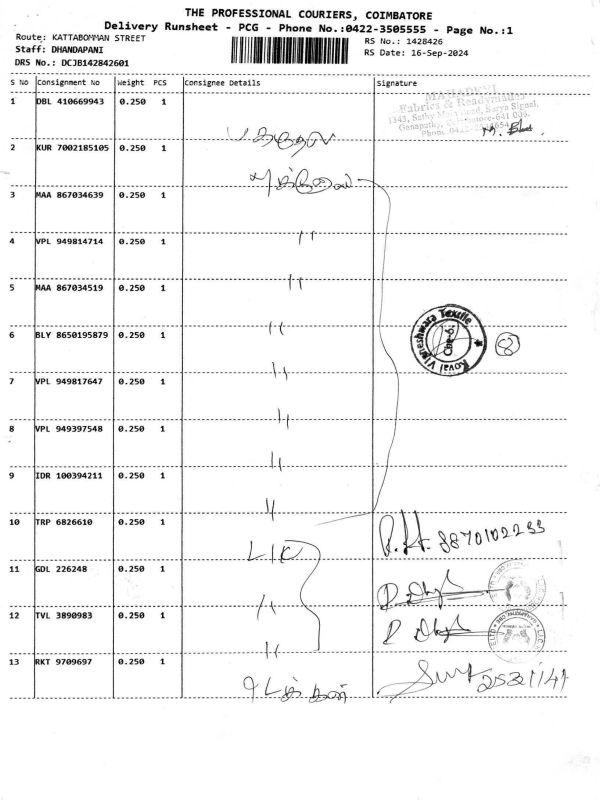 THE PROFESSIONAL COURIERS, COIMBATORE
Delivery Runsheet - PCG - Phone No.:0422-3505555 - Page No.:1
Route: KATTABOMMAN STREET
RS No.: 1428426
Staff: DHANDAPANI
RS Date: 16-Sep-2024
DRS No.: DCJB142842601
S No Consignment No Weight PCS Consignee Details Signature
1 DBL 410669943 0.250 1
MAHADEVI
Fabrics & Readymades
1343, Sathy Main Road, Surya Signal,
Ganapathy, Coimbatore-641 006.
2 KUR 7002185105 0.250 1
3 MAA 867034639 0.250 1
4 VPL 949814714 0.250 1
"
5 MAA 867034519 0.250 1
"
6 BLY 8650195879 0.250 1
"
Kovai Vigneshwara Textile
Cbe-6.
8
7 VPL 949817647 0.250 1
"
8 VPL 949397548 0.250 1
"
9 IDR 100394211 0.250 1
"
10 TRP 6826610 0.250 1
"
8870102233
LIC
11 GDL 226248 0.250 1
"
12 TVL 3890983 0.250 1
"
13 RKT 9709697 0.250 1